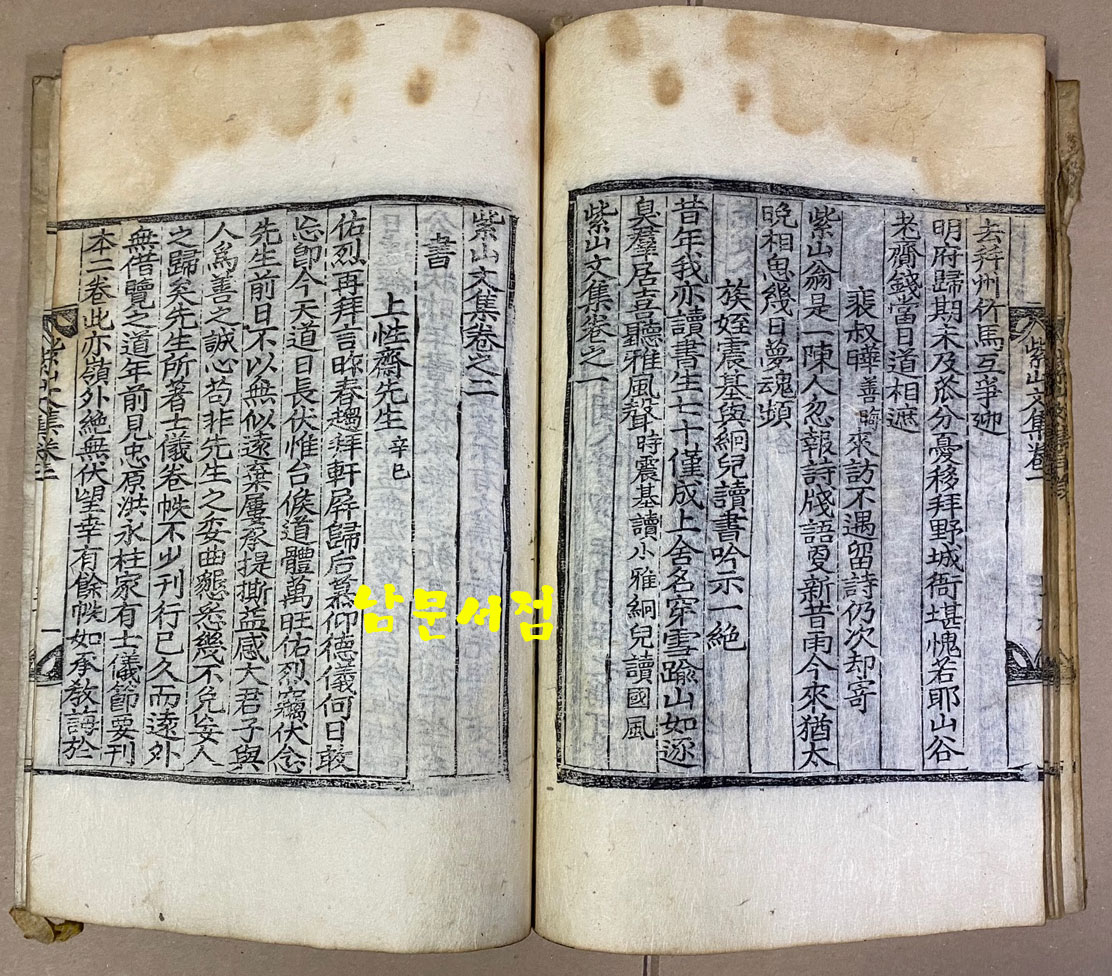 去舜州竹馬互爭迎
明府歸期未及瓜分憂移拜野城衙堪愧若耶山谷
老齎錢當日道相遮
裴叔曄善晦來訪不遇留詩仍次却寄
紫山翁是一陳人忽報詩牋語更新昔雨今來猶太
晩相思幾日夢魂頻
族姪震基與絅兒讀書吟示一絶
昔年我亦讀書生七十僅成上舍名穿雪踰山如逐
臭羣居喜聽雅風聲時震基讀小雅絅兒讀國風
紫山文集卷之一
紫山文集卷之二
書
上性齋先生辛巳
佑烈再拜言昨春趨拜軒屛歸后慕仰德儀何日敢
忘卽今天道日長伏惟台候道體萬旺佑烈竊伏念
先生前日不以無似遂棄屢承提撕益感大君子與
人爲善之誠心苟非先生之委曲懇惻幾不免妄人
之歸矣先生所著士儀卷帙不少刊行已久而遠外
無借覽之道年前見忠原洪永柱家有士儀節要刊
本二卷此亦嶺外絶無伏望幸有餘帙如承敎誨於
紫山文集卷一
紫山文集卷二
남문서점